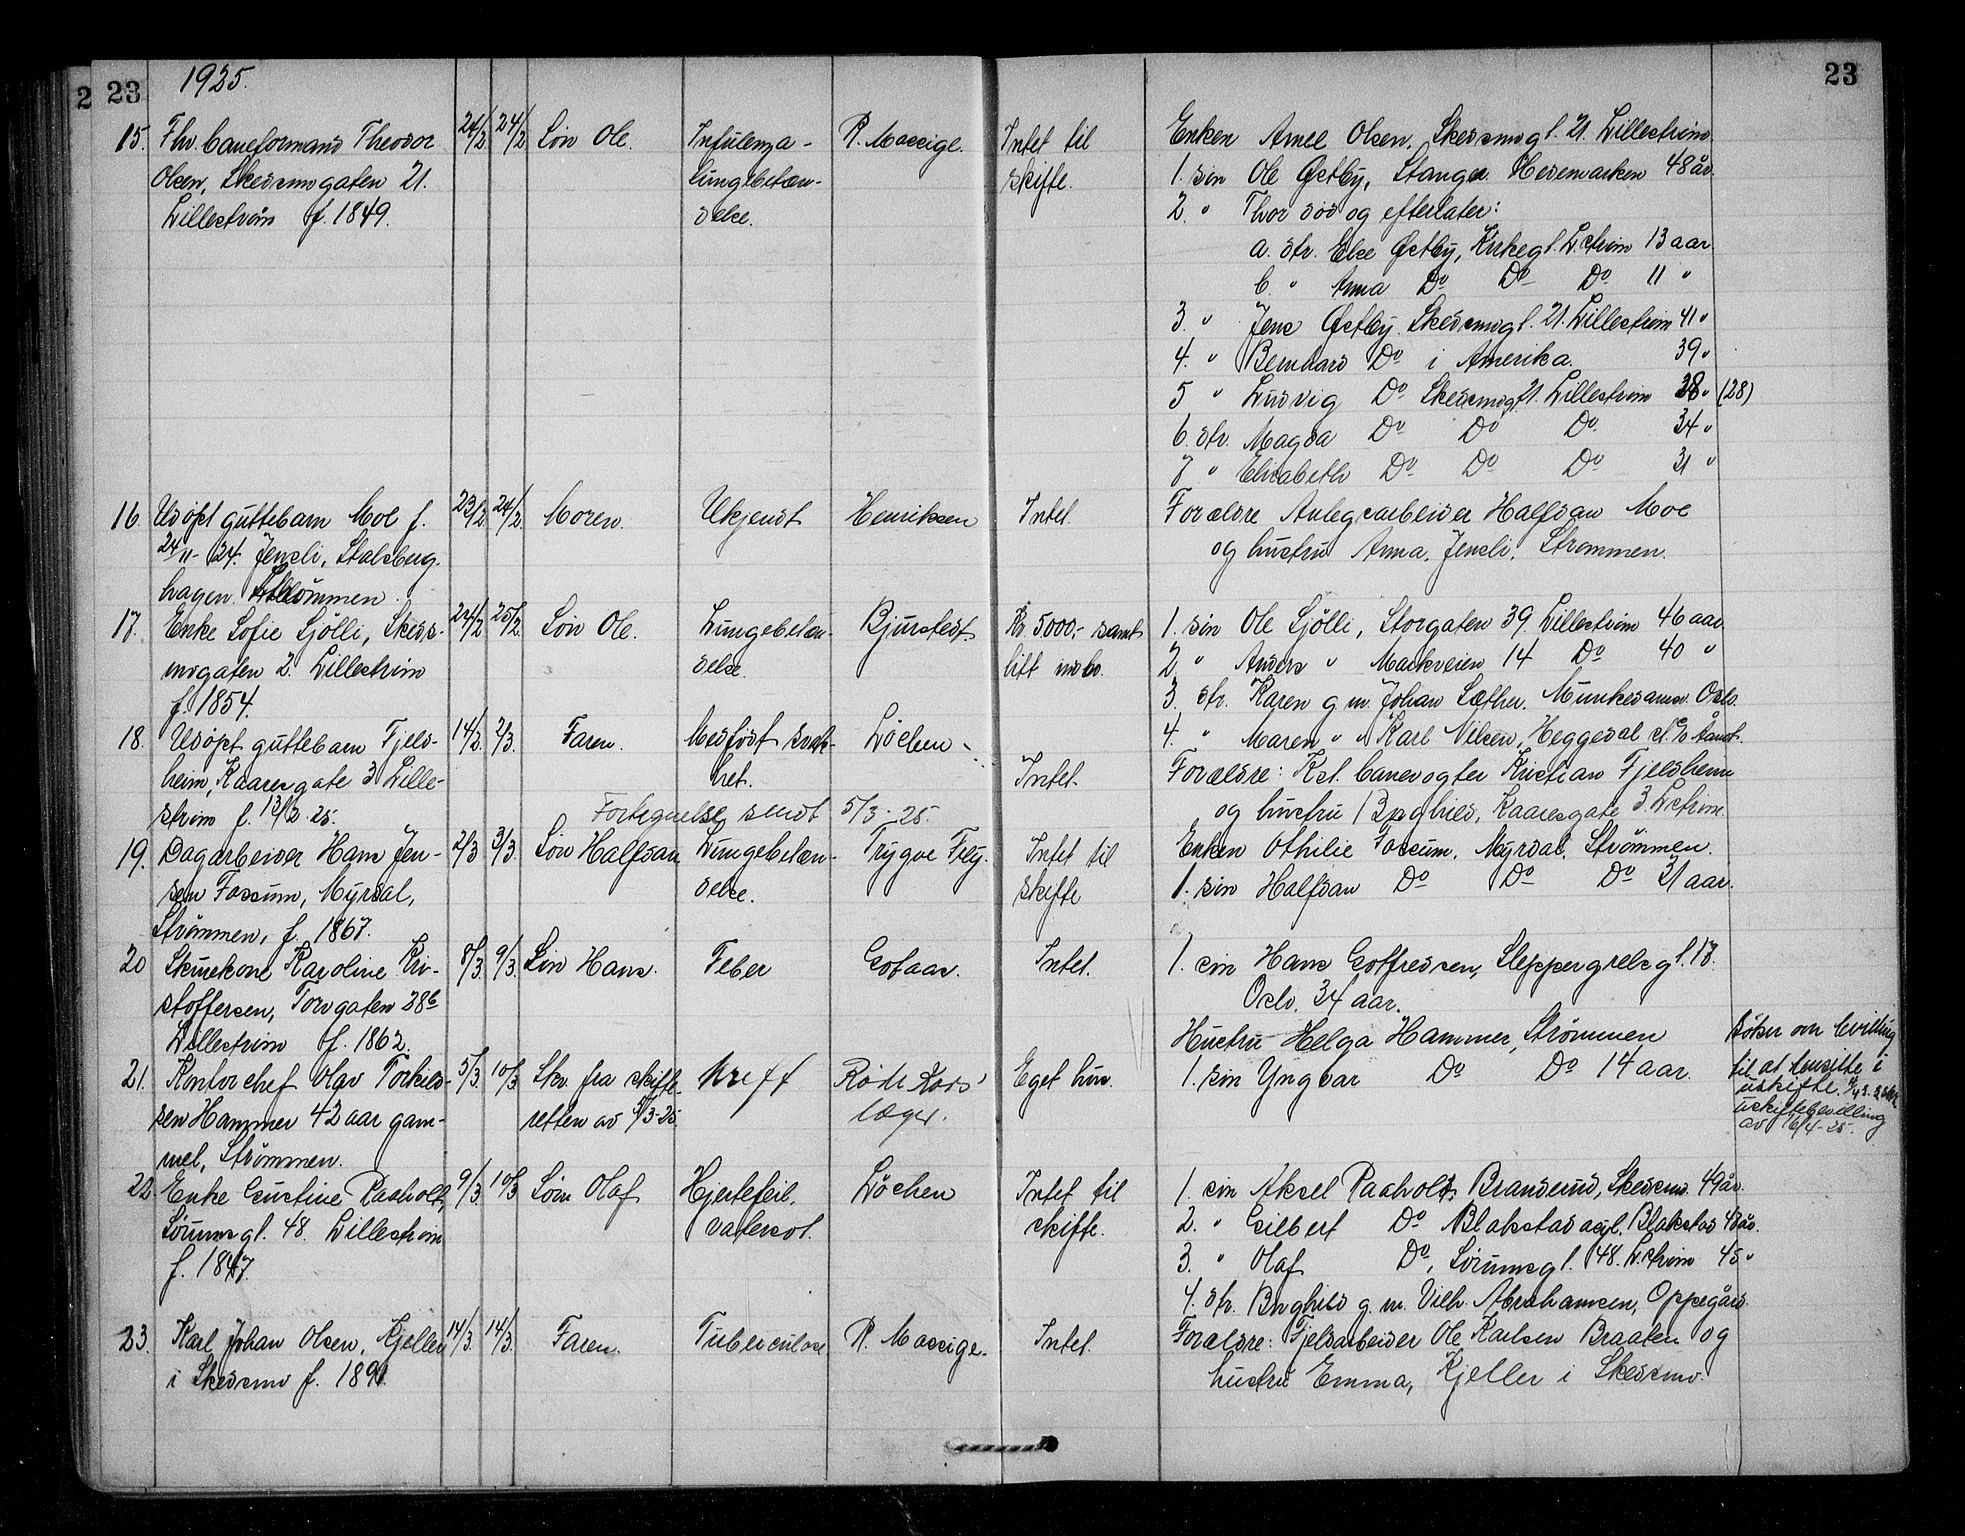 2
23
1925.
23
15. Fhv. baneformand Theodor 24/2 24/2 Søn Ole. Infulenza - R. Mossige. Intet til
Olsen, Skedsmogaten 21. lungebetæn- skifte.
Lillestrøm f. 1849. delse.
Enken Amel Olsen, Skedsmogt. 21. Lillestrøm.
1. søn Ole Østby, Stange Hedemarken 48 år.
2. " Thor død og efterlater:
a. dtr. Else Østby, Kirkegt. L.strøm 13 aar.
b. " Anna Do Do Do 11 "
3. " Jens Østby Skedsmogt. 21. Lillestrøm 41 "
4. " Bernhard Do i Amerika. 39 "
5 " Ludvig Do Skedsmogt. 21. Lillestrøm 28 " (28)
6. dtr. Magda Do Do Do 34 "
7 " Elisabeth Do Do Do 31 "
16. Udøpt guttebarn Moe f. 23/2 24/2 Moren. Ukjendt Henriksen Intet.
24/11-24. Jensli, Stalsberg-
hagen. Strømmen.
Forældre Anlegsarbeider Halfdan Moe
og hustru Anna, Jensli, Strømmen.
17. Enke Sofie Sjölli, Skeds- 24/2 25/2 Søn Ole. Lungebetæn- Bjurstedt Kr. 5000,- samt
mogaten 2. Lillestrøm delse. litt indbo.
f. 1854.
1. søn Ole Sjölli, Storgaten 39 Lillestrøm 46 aar.
2 " Anders " Markveien 14 Do 40 "
3. dtr. Karen g. m. Johan Sæther. Munkedamsv. Oslo.
4. " Maren " " Karl Nilsen, Heggedal st. Åmot.
18. Udøpt guttebarn Fjeld- 14/2 2/3. Faren. Medfødt svak- Løchen - Intet.
heim, Kaaresgate 3 Lille- het.
strøm f. 13/2 25.
Fortegnelse sendt 5/3-25.
Forældre: Kst. banevogter Kristian Fjeldheim
og hustru Borghild, Kaaresgate 3 L.strøm.
19. Dagarbeider Hans Jen- 2/3 3/3. Søn Halfdan Lungebetæn- Trygve Fley. Intet til
sen Fossum, Myrdal, delse. skifte
Strømmen, f. 1867.
Enken Othilie Fossum, Myrdal, Strømmen.
1. søn Halfdan Do Do Do 21 aar.
20 Skurekone Karoline Kri- 8/3. 9/3. Søn Hans. Feber Gotaas. Intet.
stoffersen, Torvgaten 28b
Lillestrøm f. 1862.
1. søn Hans Gotfredsen, Sleppegrelsgt. 18.
Oslo. 34 aar.
21. Kontorchef Olav Torkild- 5/3. 10/3 Skr. fra skifte- Kreft Røde Kors' Eget hus.
sen Hammer 42 aar gam- retten av 9/3-25. læger.
mel, Strømmen.
Hustru Helga Hammer, Strømmen
1. søn Yngvar Do Do 14 aar.
Søker om bevilling
til at hensitte i
uskifte.
uskiftebevilling
av 16/4-25.
22 Enke Gustine Paaholt, 9/3. 10/3 Søn Olaf Hjertefeil, Løchen Intet til
Sørumsgt. 48. Lillestrøm vatersot. skifte.
f. 1847.
1. søn Aksel Paaholt, Brandsrud, Skedsmo. 49 år.
2. " Gilbert Do Blakstad asyl. Blakstad 48 år.
3. " Olaf Do, Sørumsgt. 48. L.strøm 45 "
4. dtr. Borghild g. m. Vilh. Abrahamsen, Oppegård.
23. Karl Johan Olsen, Kjeller 14/3. 14/3. Faren. Tuberculose R. Mossige. Intet.
i Skedsmo f. 1891.
Forældre: Fjeldarbeider Ole Karlsen Braaten og
hustru Emma, Kjeller i Skedsmo.